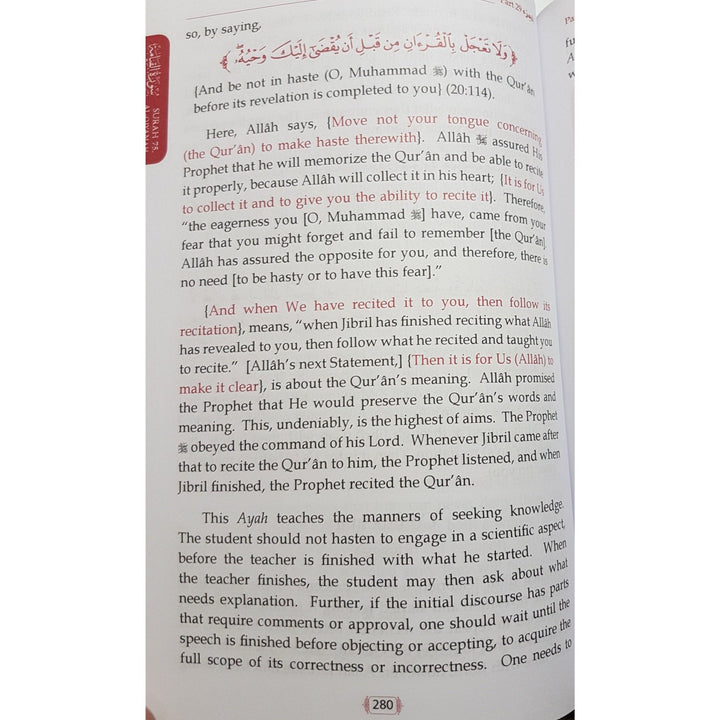 Part 29 الجزء
so, by saying,
﴿ وَلَا تَعْجَلْ بِالْقُرْءَانِ مِن قَبْلِ أَن يُقْضَىٰ إِلَيْكَ وَحْيُهُۥ ﴾
{And be not in haste (O, Muhammad ﷺ) with the Qur'ân
before its revelation is completed to you} (20:114).
Here, Allâh says, {Move not your tongue concerning
(the Qur'ân) to make haste therewith}. Allâh ﷻ assured His
Prophet that he will memorize the Qur'ân and be able to recite
it properly, because Allâh will collect it in his heart; {It is for Us
to collect it and to give you the ability to recite it}. Therefore,
"the eagerness you [O, Muhammad ﷺ] have, came from your
fear that you might forget and fail to remember [the Qur'ân].
Allâh has assured the opposite for you, and therefore, there is
no need [to be hasty or to have this fear]."
{And when We have recited it to you, then follow its
recitation}, means, "when Jibril has finished reciting what Allâh
has revealed to you, then follow what he recited and taught you
to recite." [Allâh's next Statement,] {Then it is for Us (Allâh) to
make it clear}, is about the Qur'ân's meaning. Allâh promised
the Prophet that He would preserve the Qur'ân's words and
meaning. This, undeniably, is the highest of aims. The Prophet
ﷺ obeyed the command of his Lord. Whenever Jibril came after
that to recite the Qur'ân to him, the Prophet listened, and when
Jibril finished, the Prophet recited the Qur'ân.
This Ayah teaches the manners of seeking knowledge.
The student should not hasten to engage in a scientific aspect,
before the teacher is finished with what he started. When
the teacher finishes, the student may then ask about what
needs explanation. Further, if the initial discourse has parts
that require comments or approval, one should wait until the
speech is finished before objecting or accepting, to acquire the
full scope of its correctness or incorrectness. One needs to
280
سورة القيامة
SURAH 75
Pa
fu
A
w